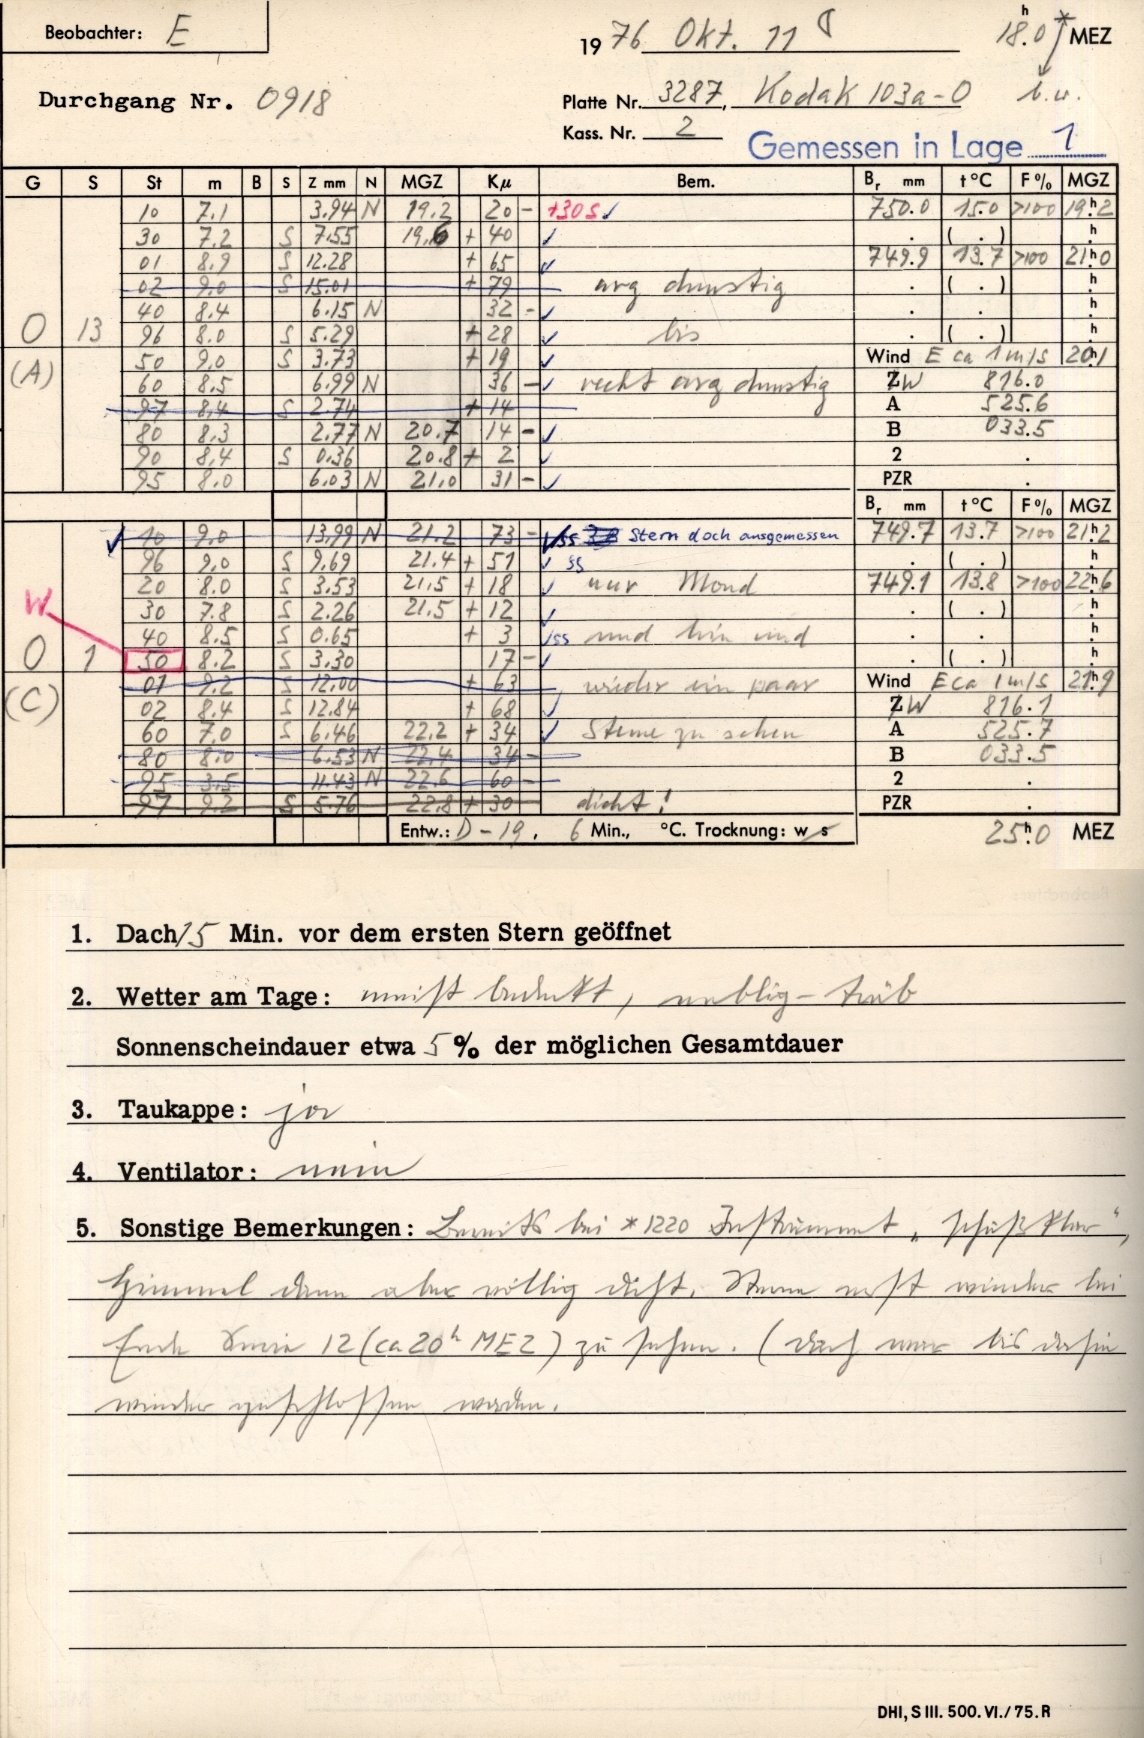 Beobachter: E
1976 Okt. 11
18.0 h * MEZ
Durchgang Nr. 0918
Platte Nr. 3287, Kodak 103a-O
b.w.
Kass. Nr. 2
Gemessen in Lage 1
G S St m B S Z mm N MGZ Kμ Bem. Br mm t °C F % MGZ
10 7.1 3.94 N 19.2 20 - +30s ✓ 750.0 15.0 >100 19h2
30 7.2 S 7.55 19.6 + 40 ✓ . ( . ) h
01 8.9 S 12.28 + 65 ✓ 749.9 13.7 >100 21h0
02 9.0 S 15.01 + 79 arg dunstig . ( . ) h
40 8.4 6.15 N 32 - ✓ . . h
0 13 96 8.0 S 5.29 + 28 ✓ bis . ( . ) h
50 9.0 S 3.73 + 19 ✓ Wind E ca 1 m/s 20h1
(A) 60 8.5 6.99 N 36 - ✓ recht arg dunstig ZW 816.0
97 8.4 S 2.74 + 14 A 525.6
80 8.3 2.77 N 20.7 14 - ✓ B 033.5
90 8.4 S 0.36 20.8 + 2 ✓ 2 .
95 8.0 6.03 N 21.0 31 - ✓ PZR .
Br mm t °C F % MGZ
✓ 10 9.0 13.99 N 21.2 73 - ✓ss Stern doch ausgemessen 749.7 13.7 >100 21h2
96 9.0 S 9.69 21.4 + 51 ✓ ss . ( . ) h
20 8.0 S 3.53 21.5 + 18 ✓ nur Mond 749.1 13.8 >100 22h6
W 30 7.8 S 2.26 21.5 + 12 ✓ . ( . ) h
40 8.5 S 0.65 + 3 ✓ss und hin und . . h
0 1 50 8.2 S 3.30 17 - ✓ . ( . ) h
01 9.2 S 12.00 + 63 , wieder ein paar Wind E ca 1 m/s 21h9
(C) 02 8.4 S 12.84 + 68 ✓ ZW 816.1
60 7.0 S 6.46 22.2 + 34 ✓ Sterne zu sehen A 525.7
80 8.0 6.53 N 22.4 34 - B 033.5
95 3.5 11.43 N 22.6 60 - 2 .
97 9.2 S 5.76 22.8 + 30 dicht! PZR .
Entw.: D-19, 6 Min., °C. Trocknung: w s
25h0 MEZ
1. Dach 15 Min. vor dem ersten Stern geöffnet
2. Wetter am Tage: meist bedeckt, neblig-trüb
Sonnenscheindauer etwa 5 % der möglichen Gesamtdauer
3. Taukappe: ja
4. Ventilator: nein
5. Sonstige Bemerkungen: Bereits bei *1220 Instrument „schußklar“,
Himmel dann aber völlig dicht. Sterne erst wieder bei
Ende Serie 12 (ca 20h MEZ) zu sehen. (Dach war bis dahin
wieder geschlossen worden.
DHI, S III. 500. VI./75. R